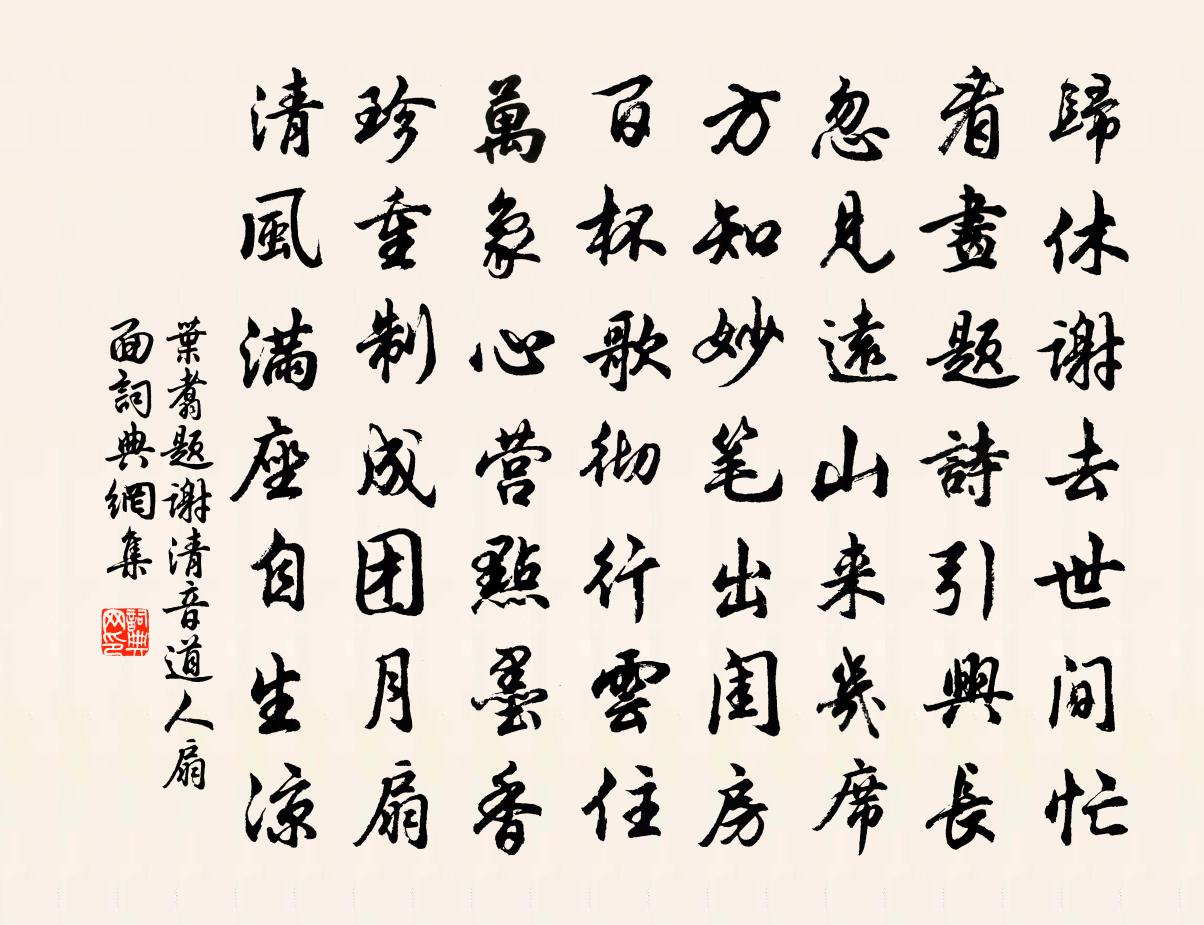 歸休謝去世间忙
看畫題詩引興長
忽見遠山来几席
方知妙笔出闺房
百杯歌彻行雲住
萬象心营點墨香
珍重制成团月扇
清風满座自生涼
葉翥题谢清音道人扇
面詞典網集
詞典网印